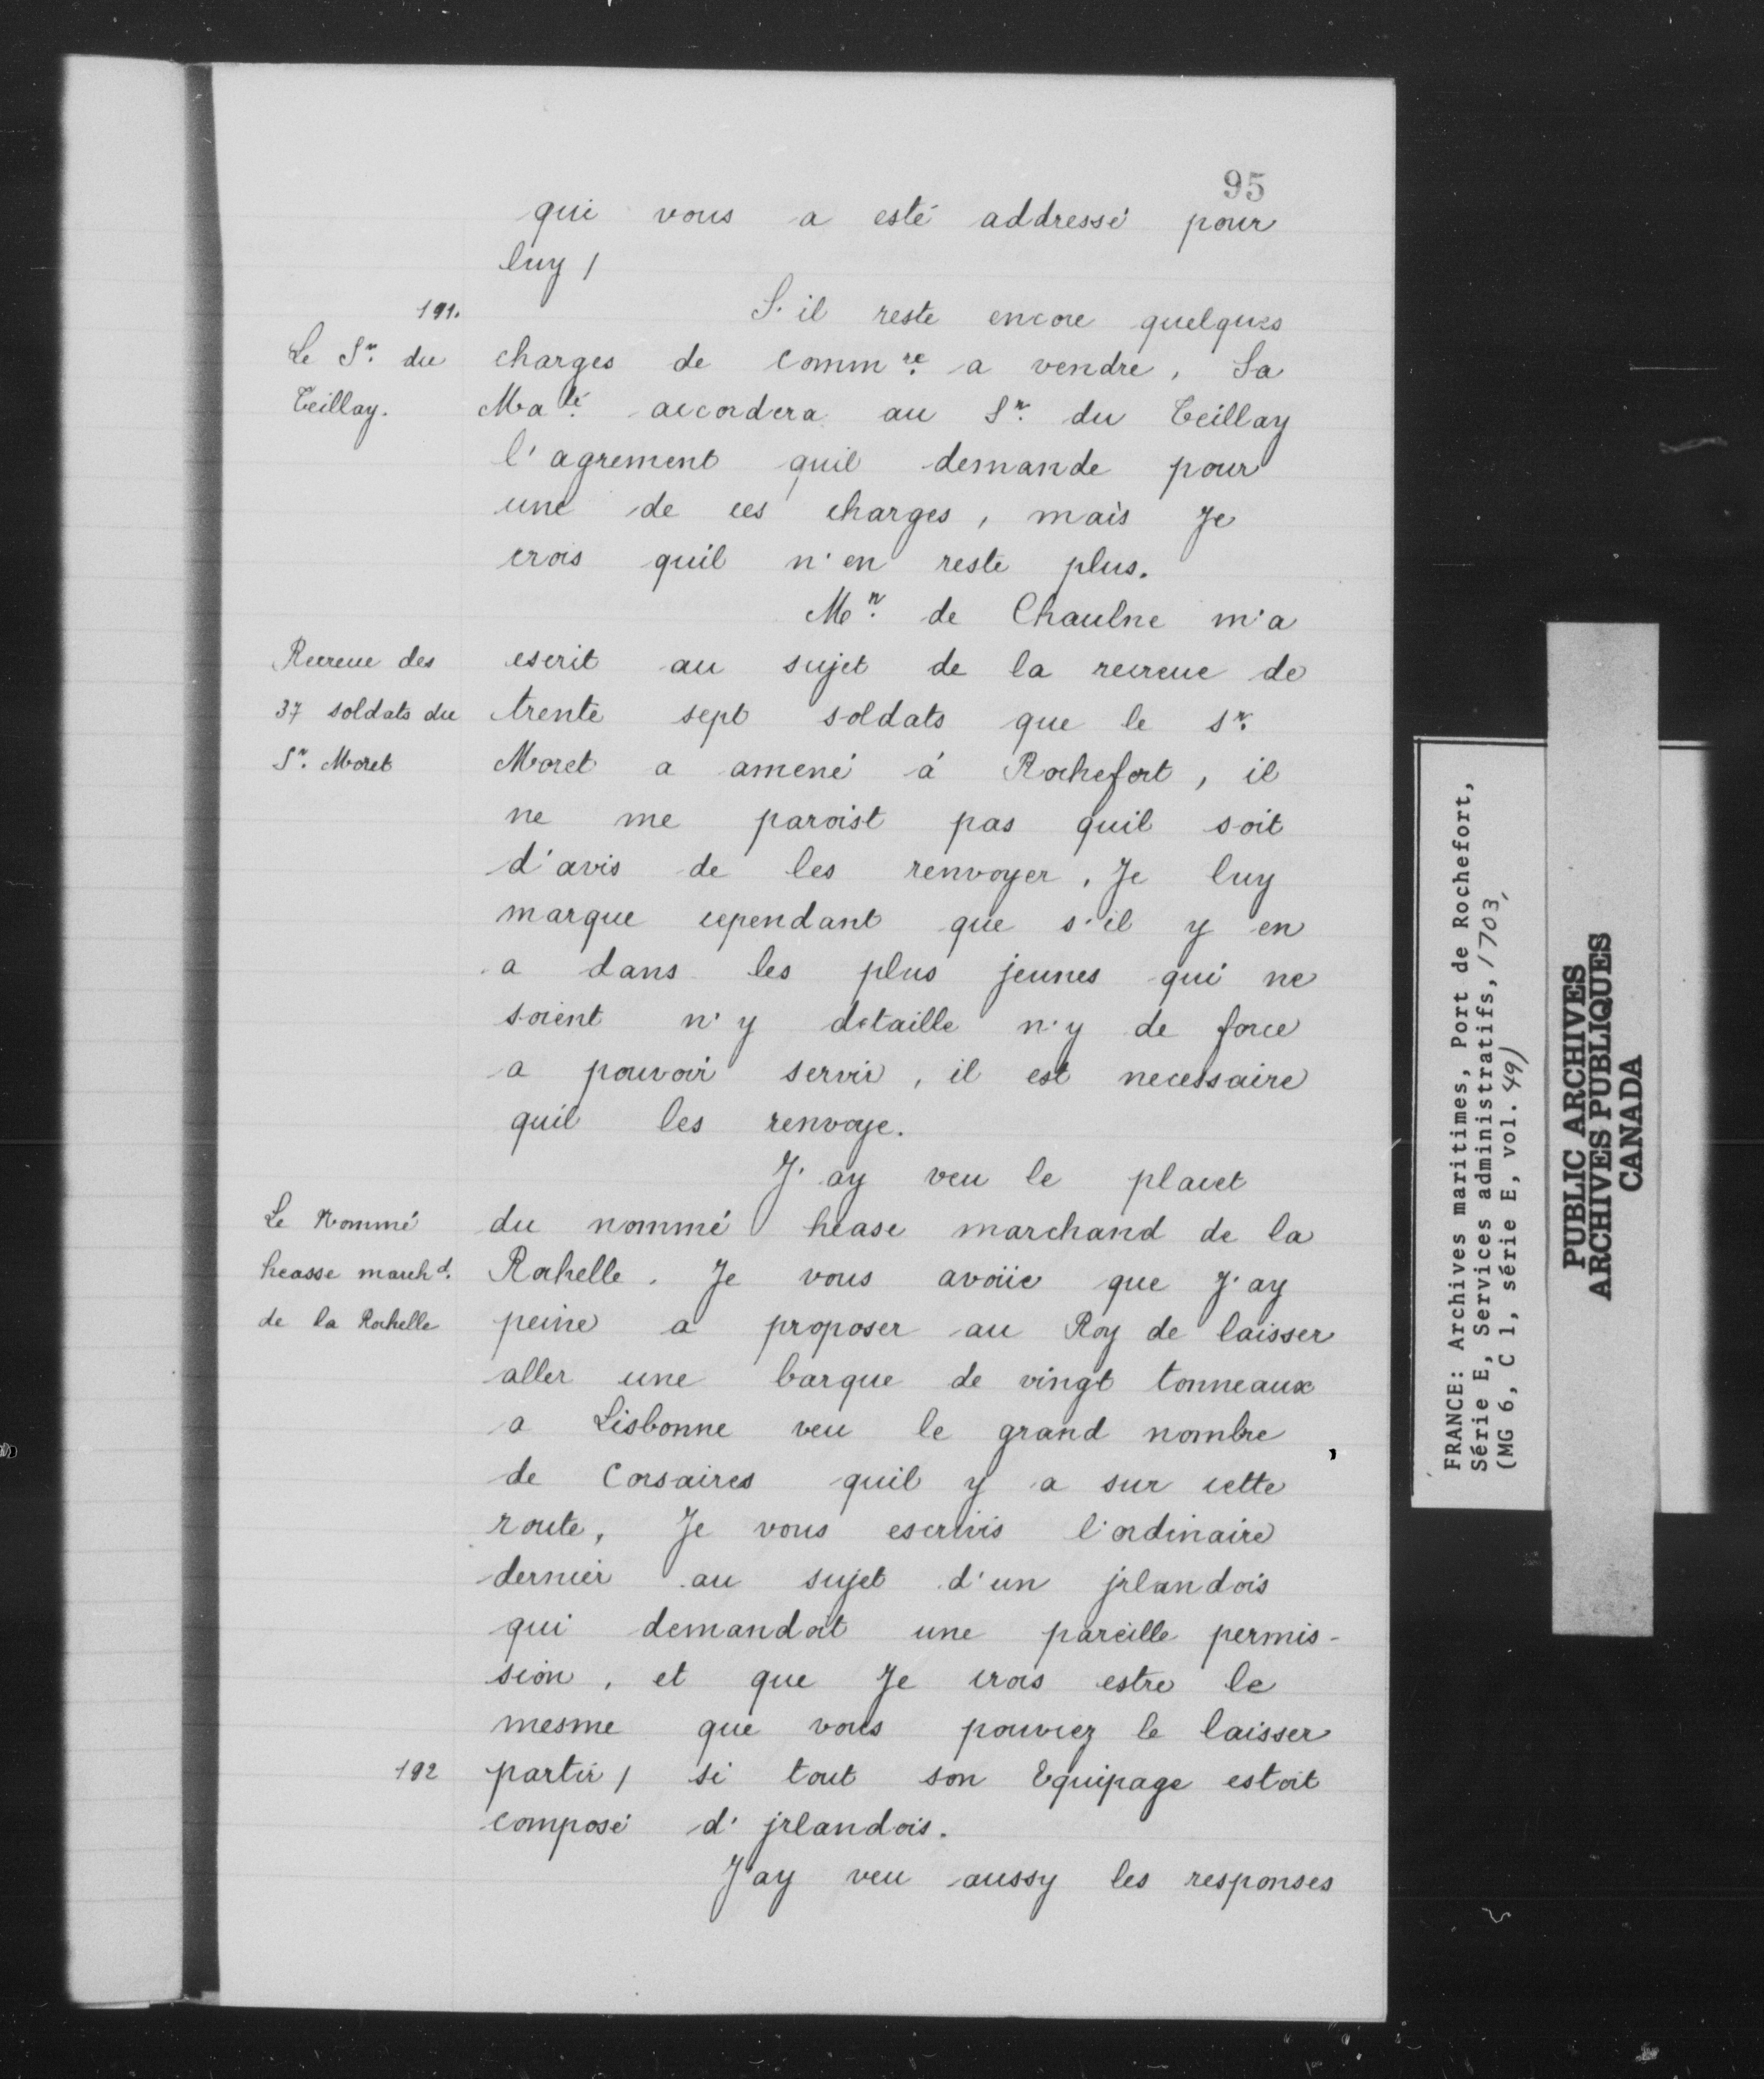 95
qui vous a esté addressé pour
luy /
191.
S'il reste encore quelques
Le Sr. du
charges de commre. a vendre, Sa
Teillay.
Maté. accordera au Sr. du Teillay
l'agrement quil demande pour
une de ces charges, mais Je
crois quil n'en reste plus.
Mr. de Chaulne m'a
Recreue des
escrit au sujet de la recreue de
37 soldats du
trente sept soldats que le sr.
Sr. Moret
Moret a amené á Rochefort, il
ne me paroist pas quil soit
d'avis de les renvoyer, Je luy
marque cependant que s'il y en
a dans les plus jeunes qui ne
soient n'y detaille n'y de force
a pouvoir servir, il est necessaire
quil les renvoye.
J'ay veu le placet
Le Nommé
du nommé hease marchand de la
heasse marchd.
Rochelle. Je vous avoüe que J'ay
de la Rochelle
peine a proposer au Roy de laisser
aller une barque de vingt tonneaux
a Lisbonne veu le grand nombre
de Corsaires quil y a sur cette
route, Je vous escrivis l'ordinaire
dernier au sujet d'un jrlandois
qui demandoit une pareille permis-
sion, et que Je crois estre le
mesme que vous pouviez le laisser
192
partir / si tout son Equipage estoit
composé d'jrlandois.
J'ay veu aussy les responses
FRANCE: Archives maritimes, Port de Rochefort,
Série E, Services administratifs, 1703,
(MG 6, C 1, série E, vol. 49)
PUBLIC ARCHIVES
ARCHIVES PUBLIQUES
CANADA